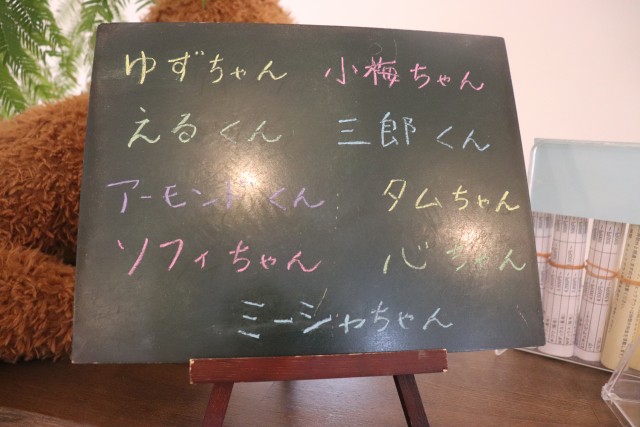 ゆずちゃん 小梅ちゃん
えるくん 三郎くん
アーモンドくん タムちゃん
ソフィちゃん 心ちゃん
ミーシャちゃん